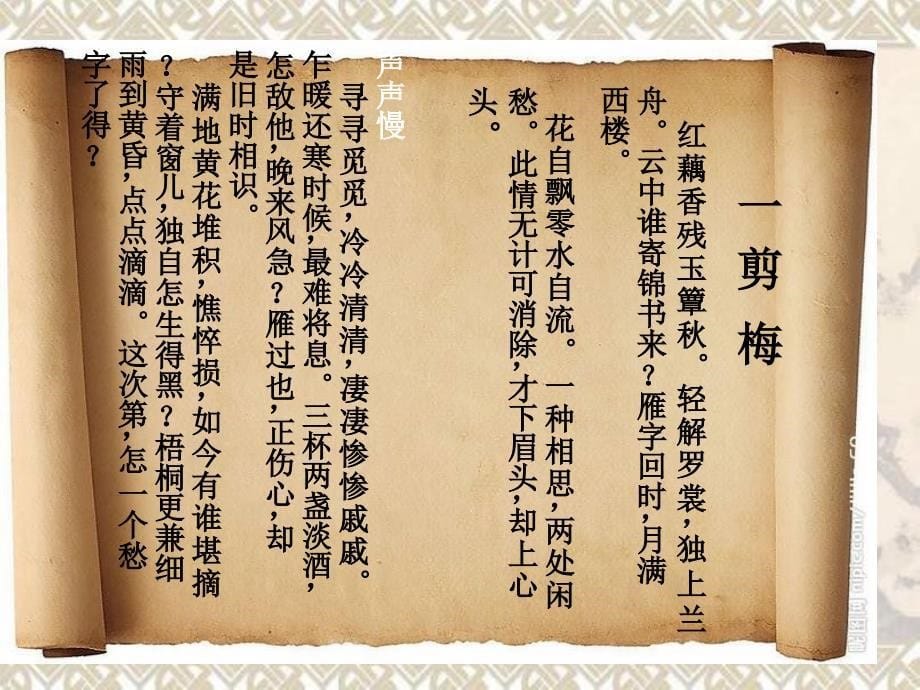 一剪梅
红藕香残玉簟秋。轻解罗裳,独上兰
舟。云中谁寄锦书来?雁字回时,月满
西楼。
花自飘零水自流。一种相思,两处闲
愁。此情无计可消除,才下眉头,却上心
头。
声声慢
寻寻觅觅,冷冷清清,凄凄惨惨戚戚。
乍暖还寒时候,最难将息。三杯两盏淡酒,
怎敌他,晚来风急?雁过也,正伤心,却
是旧时相识。
满地黄花堆积,憔悴损,如今有谁堪摘
?守着窗儿,独自怎生得黑?梧桐更兼细
雨到黄昏,点点滴滴。这次第,怎一个愁
字了得?